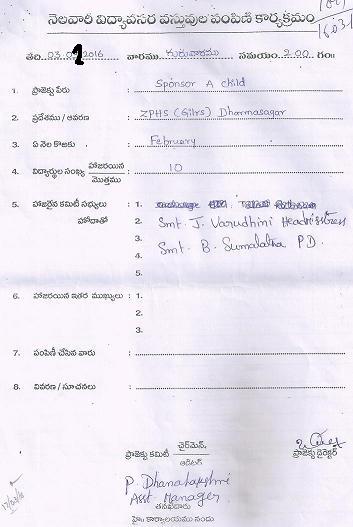 నెలవారీ విద్యావసర వస్తువుల పంపిణీ కార్యక్రమం
తేది 03.02.2016 వారము గురువారము సమయం 2.00 గం॥
1. ప్రాజెక్టు పేరు : Sponsor A child
2. ప్రదేశము / ఆవరణ : ZPHS (Gilrs) Dharmasagar
3. ఏ నెల కొరకు : February
4. విద్యార్థుల సంఖ్య హాజరయిన / మొత్తము : 10
5. హాజరైన కమిటీ సభ్యులు హోదాతో : 1.
2. Smt. J. Varudhini Headmistress
3. Smt. B. Sumalatha P.D.
4.
5.
6. హాజరయిన ఇతర ముఖ్యులు : 1.
2.
3.
7. పంపిణీ చేసిన వారు :
8. వివరణ / సూచనలు :
ప్రాజెక్టు కమిటీ చైర్మెన్ / ఆడిటర్
ప్రాజెక్టు డైరెక్టర్
P. Dhanalakshmi
Asst. Manager
తనిఖీదారు
హై॥ కార్యాలయము నందు